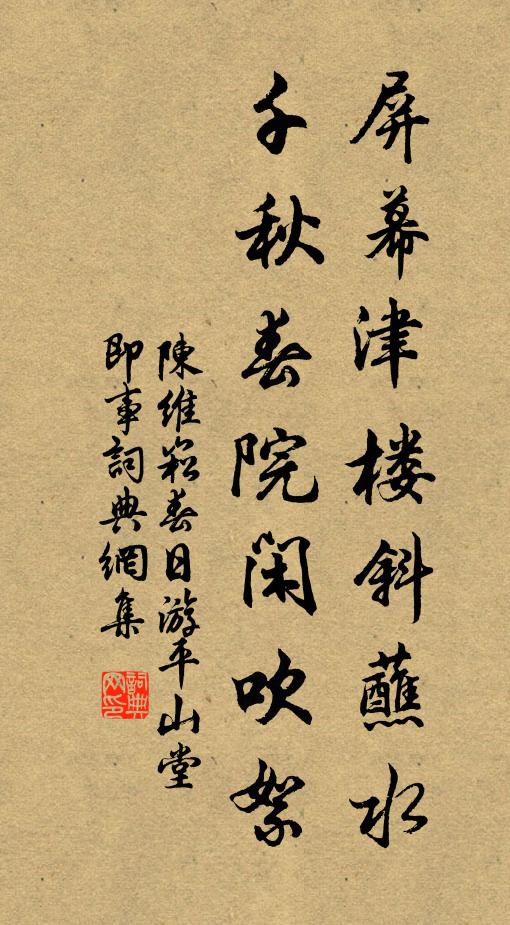 屏幕津楼斜蘸水
千秋春院闲吹絮
陳維崧春日游平山堂
即事詞典網集
詞典網印